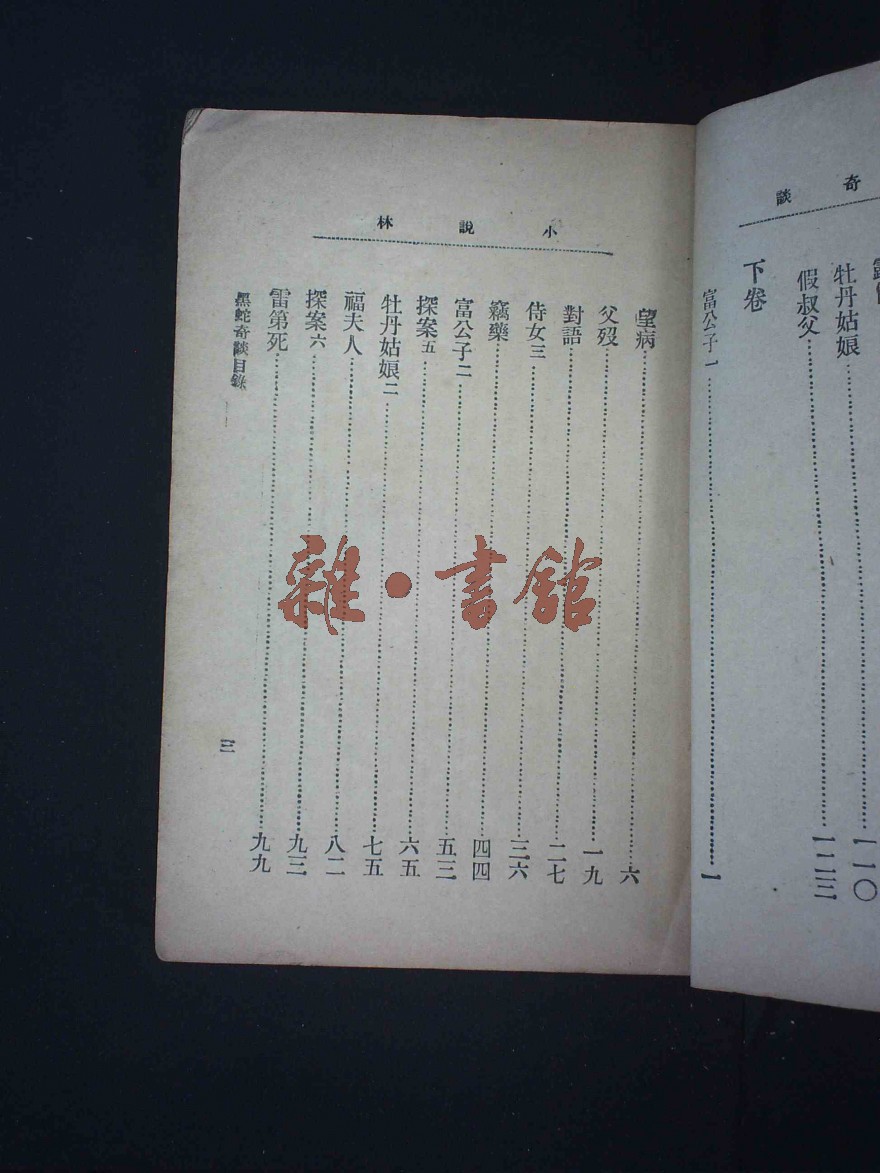 奇談
牡丹姑娘 一一〇
假叔父 一二三
下卷
富公子一 一
小說林
望病 六
父歿 一九
對語 二七
侍女三 三六
竊藥 四四
富公子二 五三
探案五 六五
牡丹姑娘二 七五
福夫人 八二
探案六 九三
雷第死 九九
黑蛇奇談目錄
三
雜·書館